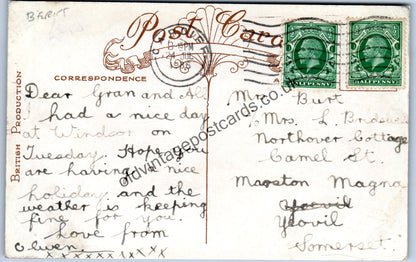 BARRY
Post Card
CORRESPONDENCE
BRITISH PRODUCTION
CARDIFF
PM
HALFPENNY
HALFPENNY
Dear Gran and All
had a nice day
at Windsor on
Tuesday. Hope you
are having a nice
holiday and the
weather is keeping
fine for you.
Love from
Olwen
xxxxxxxxx
Mr Burt
Mrs. L.
Northover Cottage
Camel St.
Marston Magna
Yeovil
Yeovil
Somerset.
oldvintagepostcards.co.uk